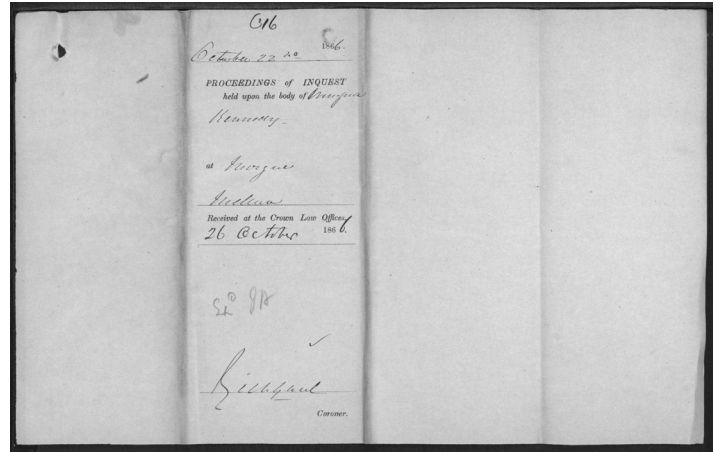 C16
October 22nd 1866.
PROCEEDINGS of INQUEST
held upon the body of
Kennedy
at Morgue
Received at the Crown Law Offices,
26 October 1866.
Coroner.